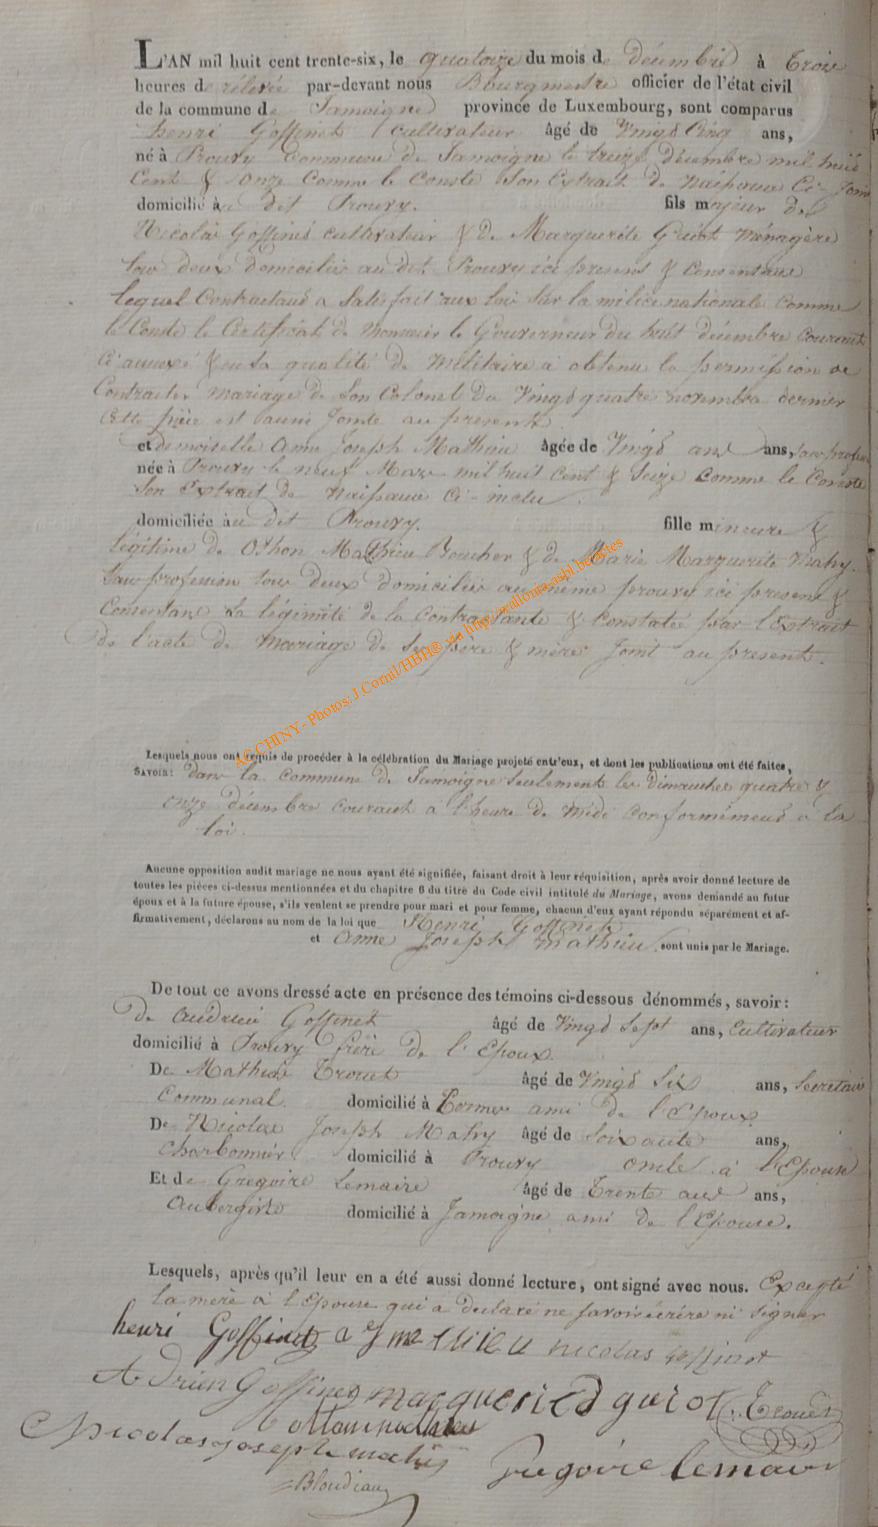 L'AN mil huit cent trente-six, le quatorze du mois de décembre à trois
heures de relevée par-devant nous Bourgmestre officier de l'état civil
de la commune de Jamoigne province de Luxembourg, sont comparus
henri Goffinet cultivateur âgé de Vingt Cinq ans,
né à Prouvy Commune de Jamoigne le treize décembre mil huit
Cent & onze Comme le Conste son Extrait de naissance Ci-Joint
domicilié au dit Prouvy. fils majeur de
Nicolas Goffinet cultivateur & de Marguerite Guiot Ménagère
tous deux domiciliés au dit Prouvy ici present & Consentant
lequel Contractant a satisfait aux lois sur la milice nationale comme
le Conste le Certificat de Monsieur le Gouverneur du huit décembre courant
Ci annexé & en sa qualité de Militaire a obtenu la permission de
Contracter mariage de son Colonel du Vingt quatre novembre dernier
cette pièce est aussi Jointe au present
et demoiselle Anne Joseph Mathieu âgée de Vingt ans ans, sans profession
née à Prouvy le neuf Mars mil huit cent & seize comme le Conste
son Extrait de naissance ci-inclu.
domiciliée au dit Prouvy. fille mineure &
légitime de Othon Mathieu Boucher & de Marie Marguerite Mahy.
sans profession tous deux domiciliés au même prouvy ici present &
Consentant La légimité de la Contractante & constatée par l'Extrait
de l'acte de Mariage de ses père & mère Joint au present.
AC CHINY - Photos: J.Cornil/HBH® via http://wallonia-asbl.be/sites
Lesquels nous ont requis de procéder à la célébration du Mariage projeté entr'eux, et dont les publications ont été faites,
SAVOIR: dans la Commune de Jamoigne seulement les dimanches quatre &
onze décembre courant à l'heure de Midi conformément à la
loi.
Aucune opposition audit mariage ne nous ayant été signifiée, faisant droit à leur réquisition, après avoir donné lecture de
toutes les pièces ci-dessus mentionnées et du chapitre 6 du titre du Code civil intitulé du Mariage, avons demandé au futur
époux et à la future épouse, s'ils veulent se prendre pour mari et pour femme, chacun d'eux ayant répondu séparément et af-
firmativement, déclarons au nom de la loi que Henri Goffinet
et Anne Joseph Mathieu sont unis par le Mariage.
De tout ce avons dressé acte en présence des témoins ci-dessous dénommés, savoir:
De Andrien Goffinet âgé de Vingt Sept ans, Cultivateur
domicilié à Prouvy frère de l'Epoux.
De Mathieu Trouet âgé de Vingt Six ans, Secrétaire
Communal. domicilié à ami de l'Epoux.
De Nicolas Joseph Mahy âgé de Soixante ans,
Charbonnier domicilié à Prouvy oncle à l'Epouse
Et de Gregoire Lemaire âgé de Trente ans ans,
Aubergiste domicilié à Jamoigne ami de l'Epouse.
Lesquels, après qu'il leur en a été aussi donné lecture, ont signé avec nous. Excepté
la mère à l'Epouse qui a déclaré ne savoir écrire ni signer
henri Goffinet a J mathieu nicolas Goffinet
Adrien Goffinet marguerit guiot Trouet
Nicolas joseph mahy
Gregoire lemaire